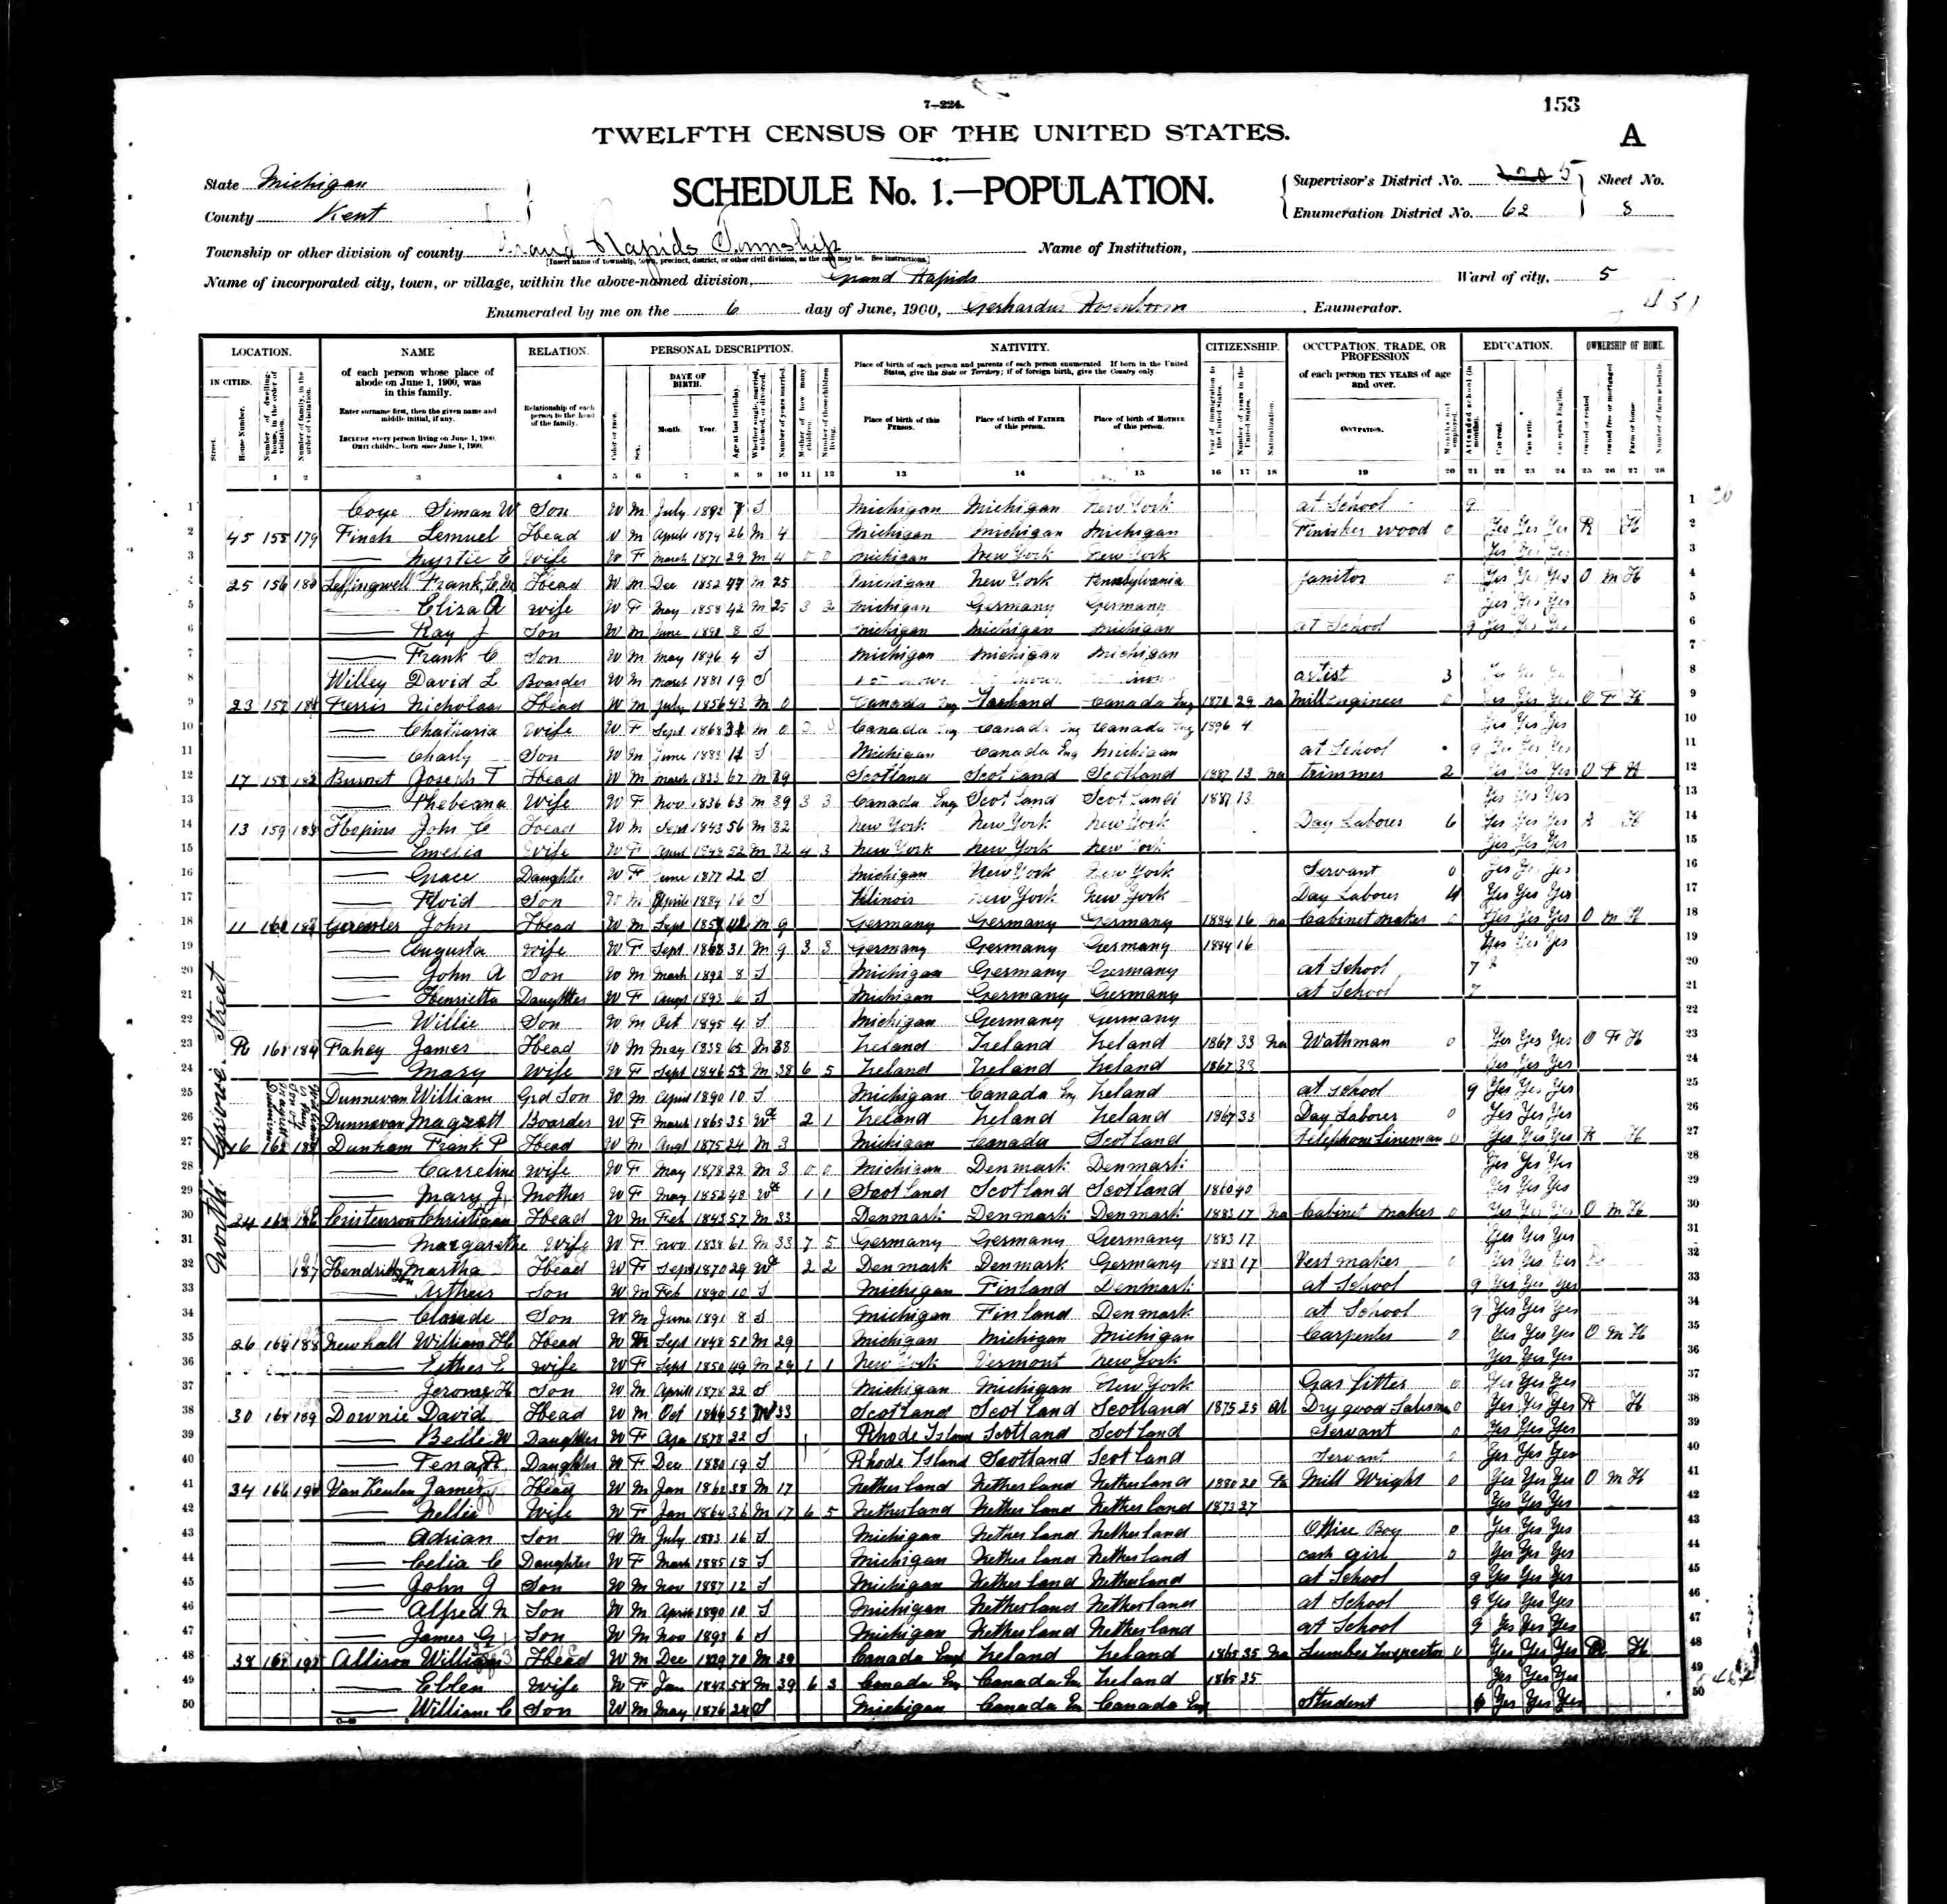 7—224.
153
TWELFTH CENSUS OF THE UNITED STATES.
A
State Michigan
County Kent
SCHEDULE No. 1.—POPULATION.
Supervisor's District No. 5
Sheet No.
Enumeration District No. 62
8
Township or other division of county Grand Rapids Township
Name of Institution,
[Insert name of township, town, precinct, district, or other civil division, as the case may be. See instructions.]
Name of incorporated city, town, or village, within the above-named division, Grand Rapids
Ward of city, 5
Enumerated by me on the 6 day of June, 1900, Gerhardus Rosenboom, Enumerator.
LOCATION. NAME RELATION. PERSONAL DESCRIPTION. NATIVITY. CITIZENSHIP. OCCUPATION, TRADE, OR PROFESSION EDUCATION. OWNERSHIP OF HOME.
IN CITIES. of each person whose place of abode on June 1, 1900, was in this family.
Enter surname first, then the given name and middle initial, if any.
INCLUDE every person living on June 1, 1900. OMIT children born since June 1, 1900.
Relationship of each person to the head of the family.
DATE OF BIRTH. Month. Year.
Place of birth of each person and parents of each person enumerated. If born in the United States, give the State or Territory; if of foreign birth, give the Country only
Place of birth of this PERSON. Place of birth of FATHER of this person. Place of birth of MOTHER of this person.
of each person TEN YEARS of age and over.
OCCUPATION.
1 2 3 4 5 6 7 8 9 10 11 12 13 14 15 16 17 18 19 20 21 22 23 24 25 26 27 28
North Grove Street
1 Coye Siman W Son W M July 1892 7 S Michigan Michigan New York at School 9
2 45 155 179 Finch Lemuel Head W M April 1874 26 M 4 Michigan Michigan Michigan Finisher wood 0 Yes Yes Yes R H
3 — Myrtie E Wife W F March 1871 29 M 4 0 0 Michigan New York New York Yes Yes Yes
4 25 156 180 Leffingwell Frank Head W M Dec 1852 47 M 25 Michigan New York Pennsylvania Janitor 0 Yes Yes Yes O M H
5 — Eliza A Wife W F May 1858 42 M 25 3 2 Michigan Germany Germany Yes Yes Yes
6 — Ray J Son W M June 8 S Michigan Michigan Michigan at School 9 Yes Yes Yes
7 — Frank C Son W M May 1896 4 S Michigan Michigan Michigan
8 Willey David L Boarder W M March 1881 19 S artist 3 Yes Yes Yes
9 23 157 181 Ferris Nicholas Head W M July 1856 43 M 0 Canada Eng Canada Eng 29 Na Mill Engineer 0 Yes Yes Yes O F H
10 — Wife W F Sept 1868 31 M 0 Canada Eng Canada Eng Canada Eng 1896 4 Yes Yes Yes
11 — Charly Son W M June S Michigan Canada Eng Michigan at School 9 Yes Yes Yes
12 17 158 182 Burnet Joseph T Head W M March 1833 67 M 39 Scotland Scotland Scotland 1887 13 Na Trimmer 2 Yes Yes Yes O F H
13 — Phebeana Wife W F Nov 1836 63 M 39 3 3 Canada Eng Scotland Scotland 1887 13 Yes Yes Yes
14 13 159 183 John C Head W M Sept 1843 56 M 32 New York New York New York Day Laborer 6 Yes Yes Yes R H
15 — Emelia Wife W F April 1848 52 M 32 4 3 New York New York New York Yes Yes Yes
16 — Grace Daughter W F June 1877 22 S Michigan New York New York Servant 0 Yes Yes Yes
17 — Floid Son W M April 1884 16 S Illinois New York New York Day Laborer 4 Yes Yes Yes
18 11 160 183 John Head W M Sept 42 M 9 Germany Germany Germany 1884 16 Na Cabinet Maker 0 Yes Yes Yes O M H
19 — Augusta Wife W F Sept 1868 31 M 9 3 3 Germany Germany Germany 1884 16 Yes Yes Yes
20 — John A Son W M March 1892 8 S Michigan Germany Germany at School 7
21 — Henrietta Daughter W F Augt 1893 6 S Michigan Germany Germany at School 7
22 — Willie Son W M Oct 1895 4 S Michigan Germany Germany
23 R 161 184 Fahey James Head W M May 65 M 38 Ireland Ireland Ireland 1867 33 Na Wathman 0 Yes Yes Yes O F H
24 — Mary Wife W F Sept 1846 53 M 38 6 5 Ireland Ireland Ireland 1867 33 Yes Yes Yes
25 Dunnevan William Grd Son W M April 1890 10 S Michigan Canada Eng Ireland at School 9 Yes Yes Yes
26 Dunnevan Magrett Boarder W F March 1865 35 Wd 2 1 Ireland Ireland Ireland 1867 33 Day Laborer 0 Yes Yes Yes
27 46 162 185 Dunham Frank P Head W M Augt 1875 24 M 3 Michigan Canada Scotland Telephone Lineman 0 Yes Yes Yes R H
28 — Carreline Wife W F May 1878 22 M 3 0 0 Michigan Denmark Denmark Yes Yes Yes
29 — Mary J Mother W F May 1852 48 Wd 1 1 Scotland Scotland Scotland 1860 40 Yes Yes Yes
30 24 163 186 Cristenson Christigan Head W M Feb 1843 57 M 33 Denmark Denmark Denmark 1883 17 Na Cabinet Maker 0 Yes Yes Yes O M H
31 — Margarethe Wife W F Nov 1838 61 M 33 7 5 Germany Germany Germany 1883 17 Yes Yes Yes
32 187 Martha Head W F Sept 1870 29 Wd 2 2 Denmark Denmark Germany 1883 17 Vest maker Yes Yes Yes R
33 — Arther Son W M Feb 1890 10 S Michigan Finland Denmark at School 9 Yes Yes Yes
34 — Claude Son W M June 1891 8 S Michigan Finland Denmark at School 9 Yes Yes Yes
35 26 164 188 Newhall William H Head W M Sept 1848 51 M 29 Michigan Michigan Michigan Carpenter 0 Yes Yes Yes O M H
36 — Esther E Wife W F Sept 1850 49 M 29 1 1 New York Vermont New York Yes Yes Yes
37 — Jerome H Son W M April 1878 22 S Michigan Michigan New York Gas fitter 0 Yes Yes Yes
38 30 165 189 Downie David Head W M Oct 1846 53 33 Scotland Scotland Scotland 1875 25 Al Drygood Salesman 0 Yes Yes Yes R H
39 — Belle W Daughter W F Apr 1878 22 S Rhode Island Scotland Scotland Servant 0 Yes Yes Yes
40 — Tena R Daughter W F Dec 1880 19 S Rhode Island Scotland Scotland Servant 0 Yes Yes Yes
41 34 166 190 Van Keulen James Head W M Jan 1862 38 M 17 Netherland Netherland Netherland 1880 20 Na Mill Wright 0 Yes Yes Yes O M H
42 — Nellie Wife W F Jan 1864 36 M 17 6 5 Netherland Netherland Netherland 1873 27 Yes Yes Yes
43 — Adrian Son W M July 1883 16 S Michigan Netherland Netherland Office Boy 0 Yes Yes Yes
44 — Celia C Daughter W F March 1885 15 S Michigan Netherland Netherland cash girl 0 Yes Yes Yes
45 — John J Son W M Nov 1887 12 S Michigan Netherland Netherland at School 9 Yes Yes Yes
46 — Alfred N Son W M April 1890 10 S Michigan Netherland Netherland at School 9 Yes Yes Yes
47 — James G Son W M Nov 1893 6 S Michigan Netherland Netherland at School 9 Yes Yes Yes
48 38 167 191 Allison William Head W M Dec 1829 70 M 39 Canada Eng Ireland Ireland 1865 35 Na Lumber Inspector 0 Yes Yes Yes R H
49 — Ellen Wife W F Jan 1842 58 M 39 6 3 Canada Eng Canada Eng Ireland 1865 35 Yes Yes Yes
50 — William C Son W M May 1876 24 S Michigan Canada En Canada Eng Student Yes Yes Yes